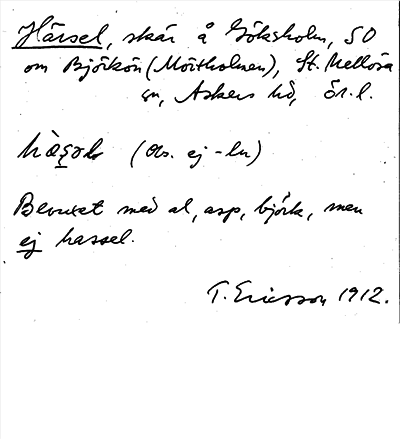 Härsel, skär å Göksholm, SO
om Björkön (Möitholmen), St. Mellösa
sn, Askers hd, Ör. l.
(Obs. ej -ln)
Bevuxet med al, asp, björk, men
ej hassel.
T. Ericsson 1912.